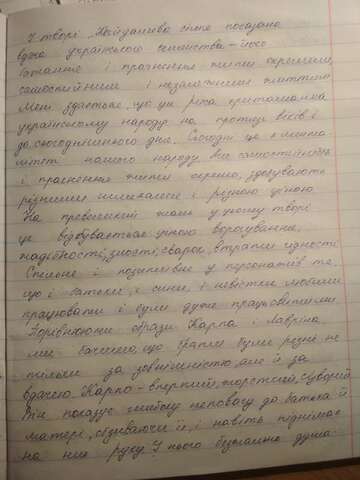 У творі "Кайдашева сім'я" показано
вдача українського селянства - його
бажання і прагнення жити окремим,
самостійним і незалежним життям.
Мені здається, що ця риса притаманна
українському народу на протязі віків і
до сьогоднішнього дня. Сьогодні це є
нашого народу
і прагнення жити окремо, здобувають
різними шляхами і різною ціною.
На превеликий жаль у цьому творі
це відбувається ціною ворогування,
жадібності, злості, сварок, втрати гідності.
Спільне і позитивне у персонажів те,
що і батьки, і сини, і невістки любили
працювати і були дуже працьовитими.
Порівнюючи образи Карпа і Лавріна
ми бачимо, що брати були різні не
тільки за зовнішністю, але й за
вдачею. Карпо - впертий, жорсткий, суворий.
Він показує глибоку неповагу до батька й
матері, обзиваючи її, і навіть піднімає
на них руку. У нього безжальна душа